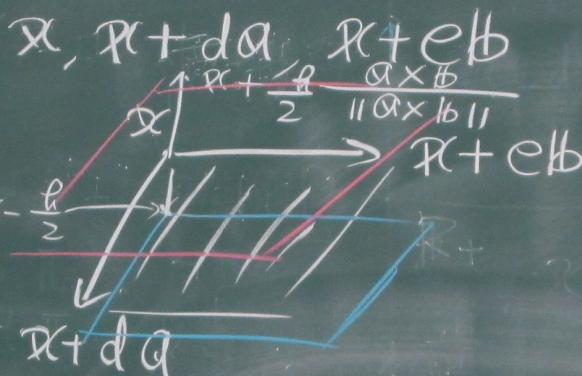 x, x + da, x + eb
x + h/2 a×b/||a×b||
x
x + eb
- h/2
x + da